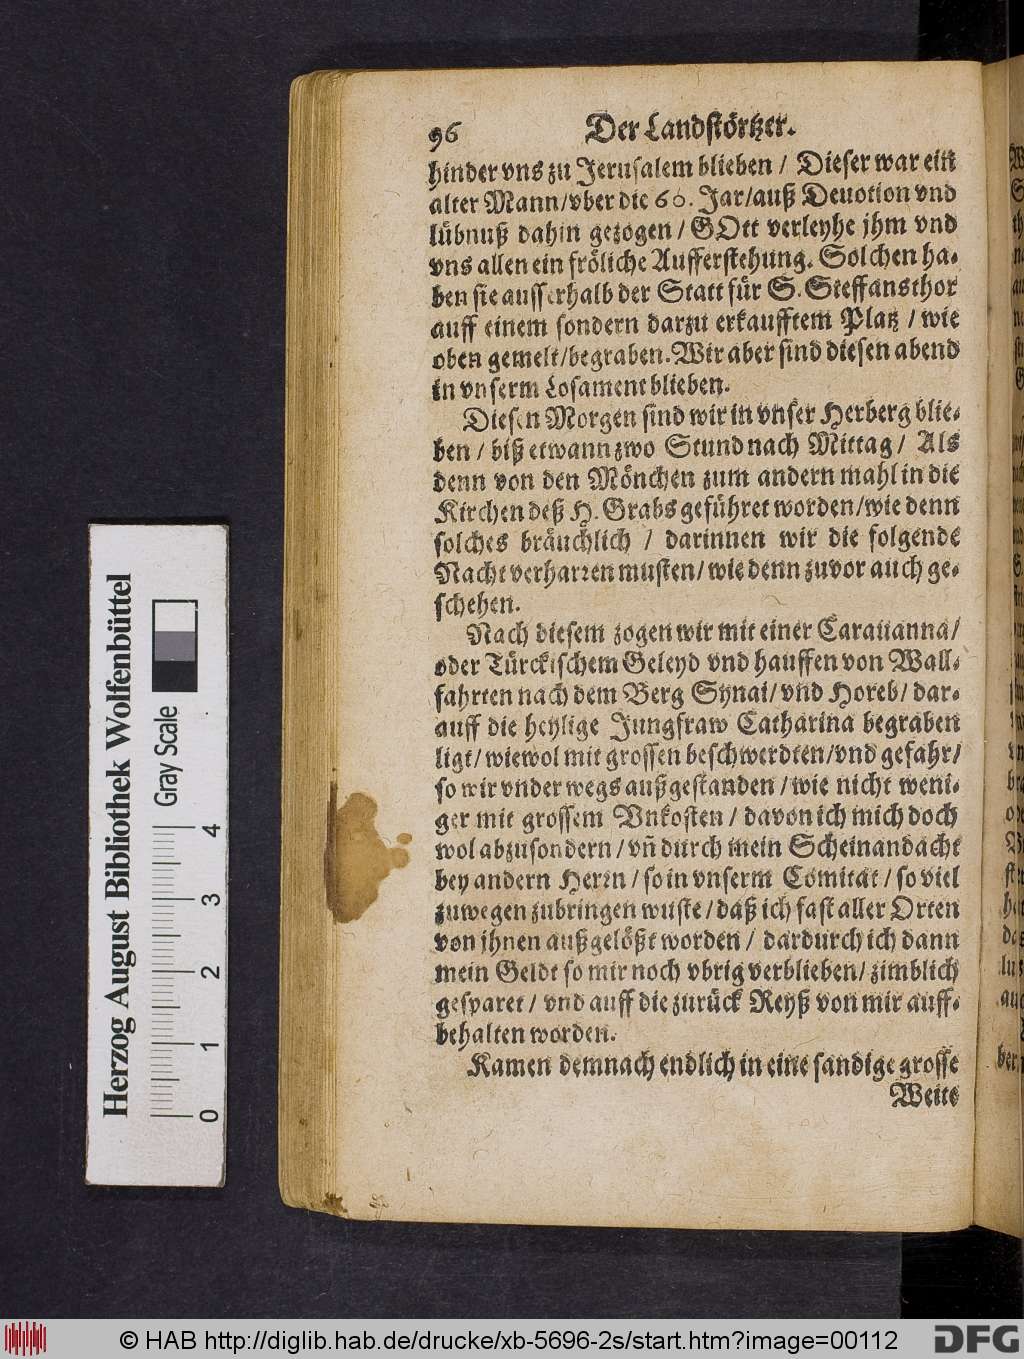 96 Der Landstörtzer.
hinder vns zu Jerusalem blieben / Dieser war ein
alter Mann/vber die 60. Jar/auß Deuotion vnd
lübnuß dahin gezogen / GOtt verleyhe jhm vnd
vns allen ein fröliche Aufferstehung. Solchen ha-
ben sie ausserhalb der Statt für S. Steffansthor
auff einem sondern darzu erkaufftem Platz / wie
oben gemelt/begraben. Wir aber sind diesen abend
in vnserm Losament blieben.
Diesen Morgen sind wir in vnser Herberg blie-
ben / biß etwann zwo Stund nach Mittag / Als
denn von den Mönchen zum andern mahl in die
Kirchen deß H. Grabs geführet worden/wie denn
solches bräuchlich / darinnen wir die folgende
Nacht verharren musten/ wie denn zuvor auch ge-
schehen.
Nach diesem zogen wir mit einer Carauanna/
oder Türckischem Geleyd vnd hauffen von Wall-
fahrten nach dem Berg Synai/ vnd Horeb/ dar-
auff die heylige Jungfraw Catharina begraben
ligt/ wiewol mit grossen beschwerdten/vnd gefahr/
so wir vnder wegs außgestanden / wie nicht weni-
ger mit grossem Vnkosten / davon ich mich doch
wol abzusondern / vñ durch mein Scheinandacht
bey andern Herrn / so in vnserm Comitat / so viel
zuwegen zubringen wuste / daß ich fast aller Orten
von jhnen außgelößt worden / dardurch ich dann
mein Geldt so mir noch vbrig verblieben/ zimblich
gesparet / vnd auff die zurück Reyß von mir auff-
behalten worden.
Kamen demnach endlich in eine sandige grosse
Weite
Herzog August Bibliothek Wolfenbüttel
Gray Scale
0 1 2 3 4
© HAB http://diglib.hab.de/drucke/xb-5696-2s/start.htm?image=00112
DFG